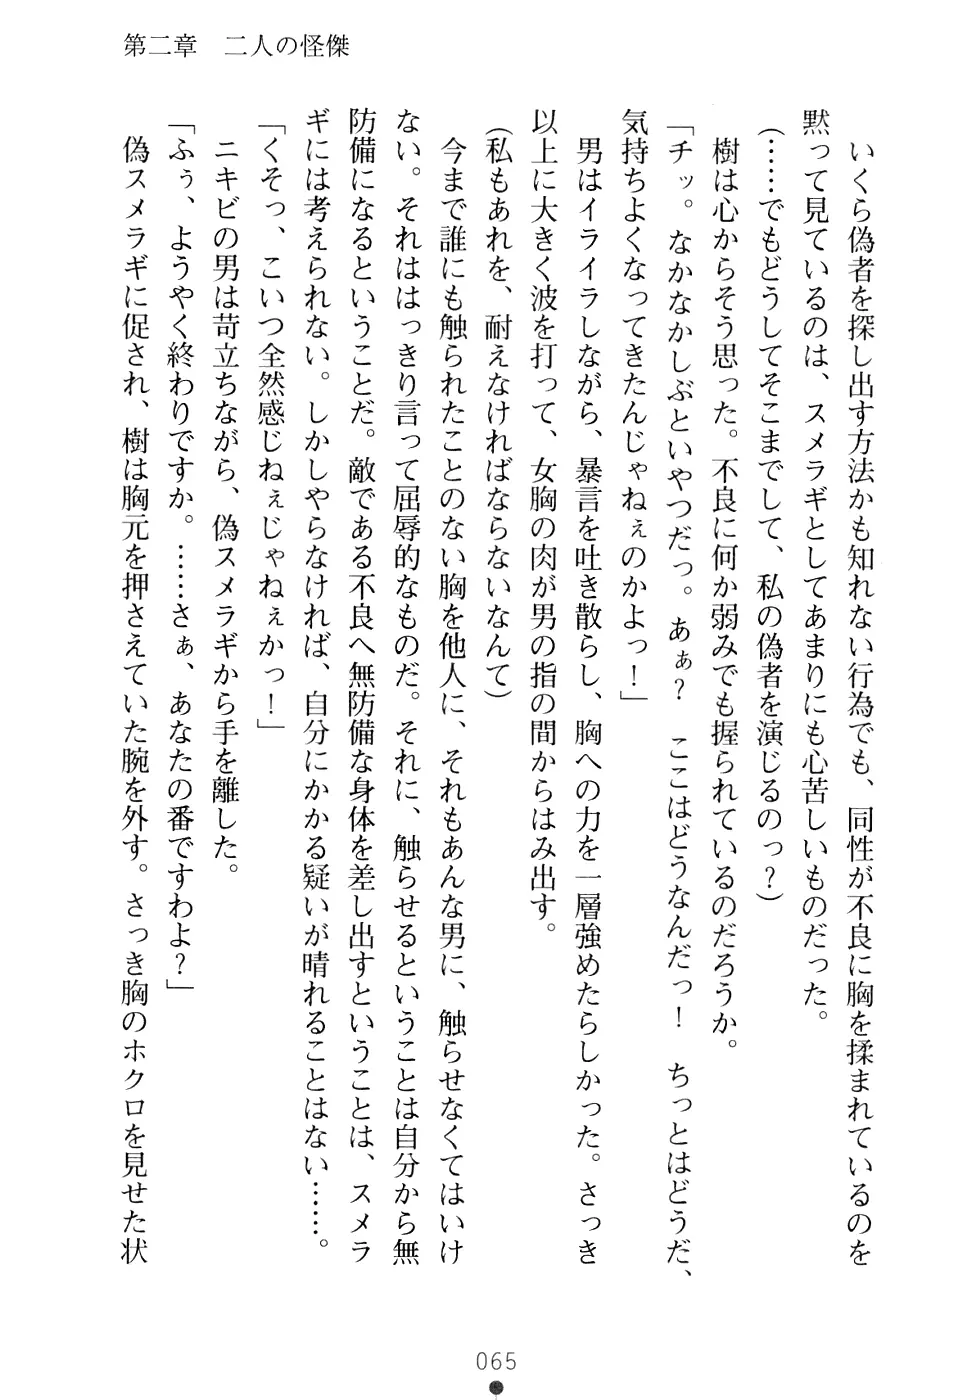 第二章　二人の怪傑
いくら偽者を探し出す方法かも知れない行為でも、同性が不良に胸を揉まれているのを
黙って見ているのは、スメラギとしてあまりにも心苦しいものだった。
(……でもどうしてそこまでして、私の偽者を演じるのっ？)
樹は心からそう思った。不良に何か弱みでも握られているのだろうか。
「チッ。なかなかしぶといやつだっ。あぁ？　ここはどうなんだっ！　ちっとはどうだ、
気持ちよくなってきたんじゃねぇのかよっ！」
男はイライラしながら、暴言を吐き散らし、胸への力を一層強めたらしかった。さっき
以上に大きく波を打って、女胸の肉が男の指の間からはみ出す。
(私もあれを、耐えなければならないなんて)
今まで誰にも触られたことのない胸を他人に、それもあんな男に、触らせなくてはいけ
ない。それははっきり言って屈辱的なものだ。それに、触らせるということは自分から無
防備になるということだ。敵である不良へ無防備な身体を差し出すということは、スメラ
ギには考えられない。しかしやらなければ、自分にかかる疑いが晴れることはない……。
「くそっ、こいつ全然感じねぇじゃねぇかっ！」
ニキビの男は苛立ちながら、偽スメラギから手を離した。
「ふぅ、ようやく終わりですか。……さぁ、あなたの番ですわよ？」
偽スメラギに促され、樹は胸元を押さえていた腕を外す。さっき胸のホクロを見せた状
065